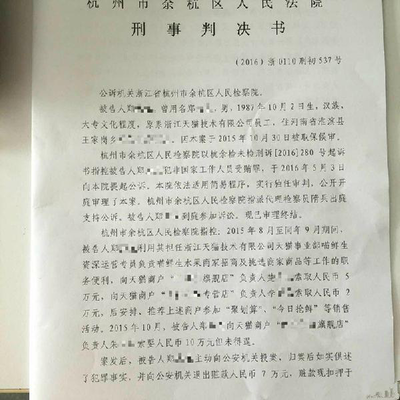 杭州市余杭区人民法院
刑事判决书
（2016）浙0110刑初537号
公诉机关浙江省杭州市余杭区人民检察院。
被告人郑 ，曾用名郑 ，男，1987年10月2日生，汉族，
大专文化程度，原系浙江天猫技术有限公司员工，住河南省淮滨县
王家岗乡 因本案于2015年10月30日被取保候审。
杭州市余杭区人民检察院以杭余检未检刑诉[2016]280号起诉
书指控被告人郑 犯非国家工作人员受贿罪，于2016年5月3日
向本院提起公诉。本院依法适用简易程序，实行独任审判，公开开
庭审理了本案。杭州市余杭区人民检察院指派代理检察员 出庭
支持公诉，被告人郑 到庭参加诉讼。现已审理终结。
杭州市余杭区人民检察院指控：2015年8月至同年9月期间，
被告人郑 利用其担任浙江天猫技术有限公司天猫事业部喵鲜生
资深运营专员负责喵鲜生水果商家招商及挑选商家商品等工作的职
务便利，向天猫商户“ 旗舰店”负责人 索取人民币5
万元，向天猫商户“ 专营店”负责人李 索取人民币2
万元，后安排、推荐上述商户参加“聚划算”、“今日抢鲜”等销售
活动。2015年10月，被告人郑 向天猫商户“ 旗舰店”
负责人朱 索要人民币10万元但未得逞。
案发后，被告人郑 主动向公安机关投案，归案后如实供述
了犯罪事实，并向公安机关退出赃款人民币7万元，赃款现扣押于